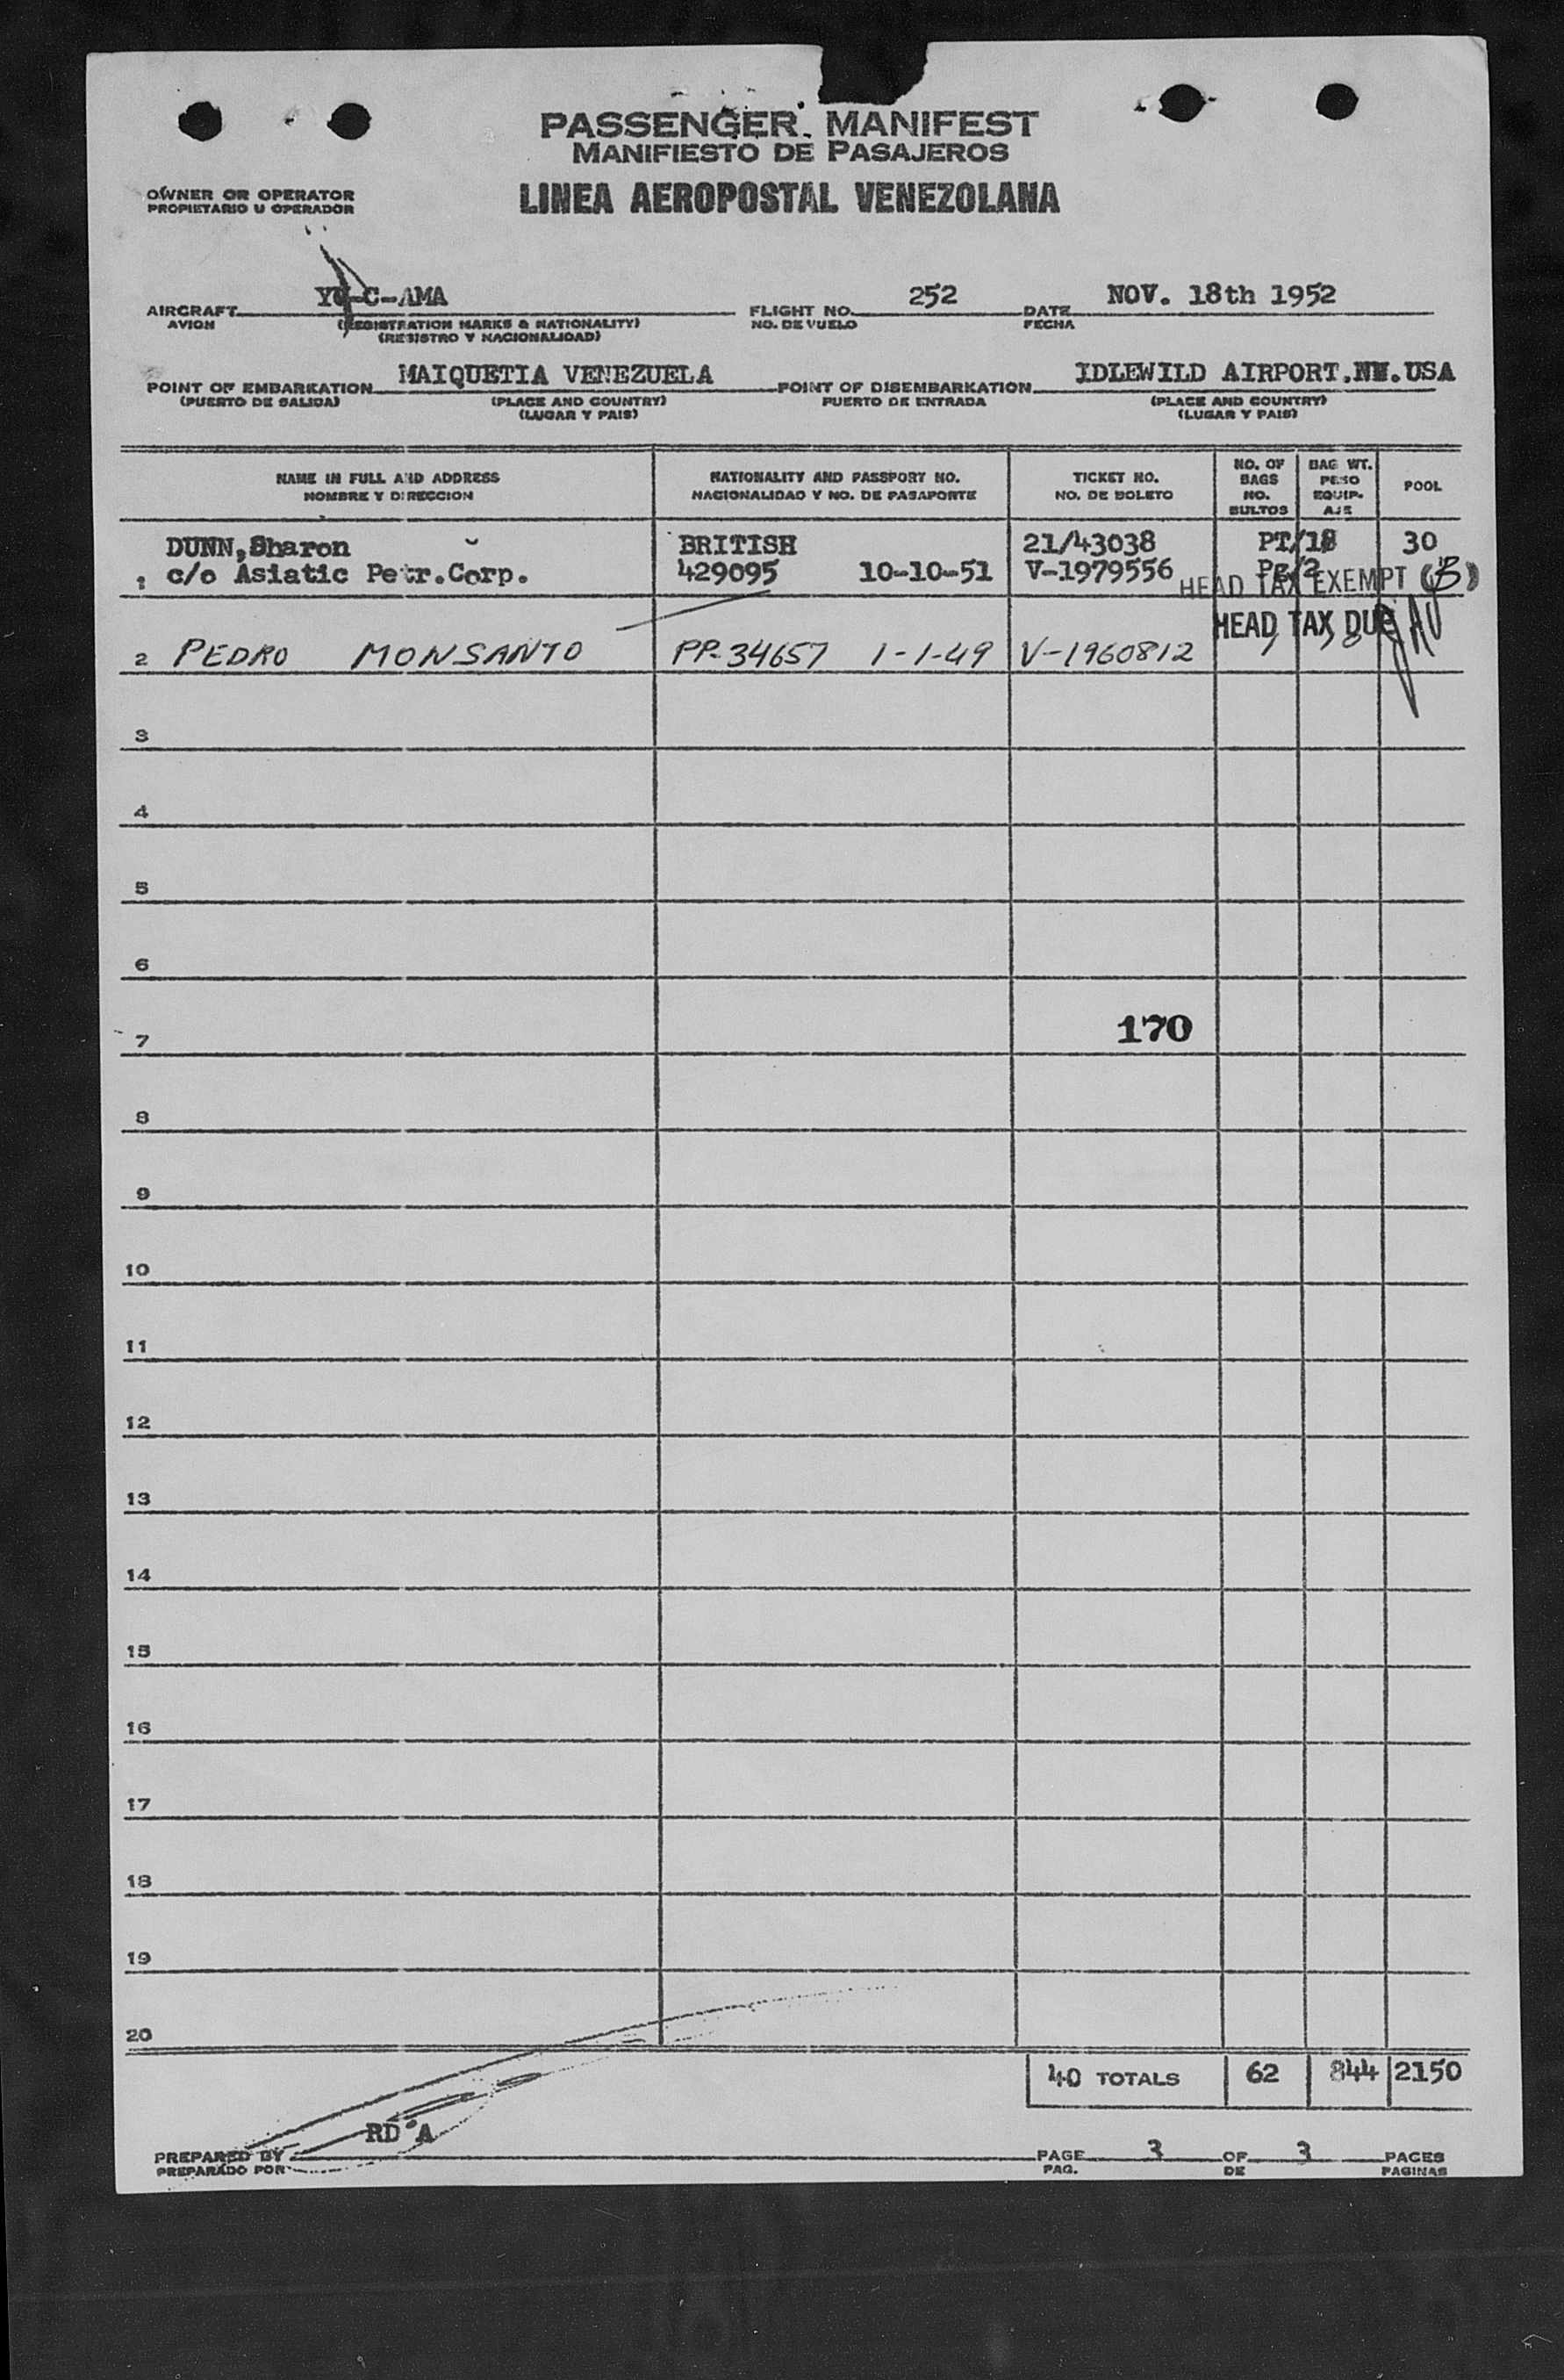 PASSENGER MANIFEST
MANIFIESTO DE PASAJEROS
OWNER OR OPERATOR
PROPIETARIO U OPERADOR
LINEA AEROPOSTAL VENEZOLANA
AIRCRAFT YV-C-AMA FLIGHT NO. 252 DATE NOV. 18th 1952
AVION (REGISTRATION MARKS & NATIONALITY) NO. DE VUELO FECHA
(REGISTRO Y NACIONALIDAD)
POINT OF EMBARKATION MAIQUETIA VENEZUELA POINT OF DISEMBARKATION IDLEWILD AIRPORT.NW.USA
(PUERTO DE SALIDA) (PLACE AND COUNTRY) PUERTO DE ENTRADA (PLACE AND COUNTRY)
(LUGAR Y PAIS) (LUGAR Y PAIS)
NAME IN FULL AND ADDRESS
NOMBRE Y DIRECCION
NATIONALITY AND PASSPORT NO.
NACIONALIDAD Y NO. DE PASAPORTE
TICKET NO.
NO. DE BOLETO
NO. OF
BAGS
NO.
BULTOS
BAG WT.
PESO
EQUIP-
AJE
POOL
DUNN,Sharon BRITISH 21/43038 PT/18 30
1 c/o Asiatic Petr.Corp. 429095 10-10-51 V-1979556 Pc/2
HEAD TAX EXEMPT (B)
HEAD TAX DUE
2 PEDRO MONSANTO PP-34657 1-1-49 V-1960812
3
4
5
6
7 170
8
9
10
11
12
13
14
15
16
17
18
19
20
40 TOTALS 62 844 2150
RD'A
PREPARED BY PAGE 3 OF 3 PAGES
PREPARADO POR PAG. DE PAGINAS